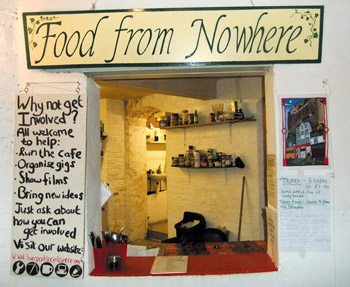 Food from Nowhere
Why not get
Involved?
All welcome
to help:
· Run the cafe
· Organise gigs
· Show films
· Bring new ideas
Just ask about
how you can
get involved
Visit our website: